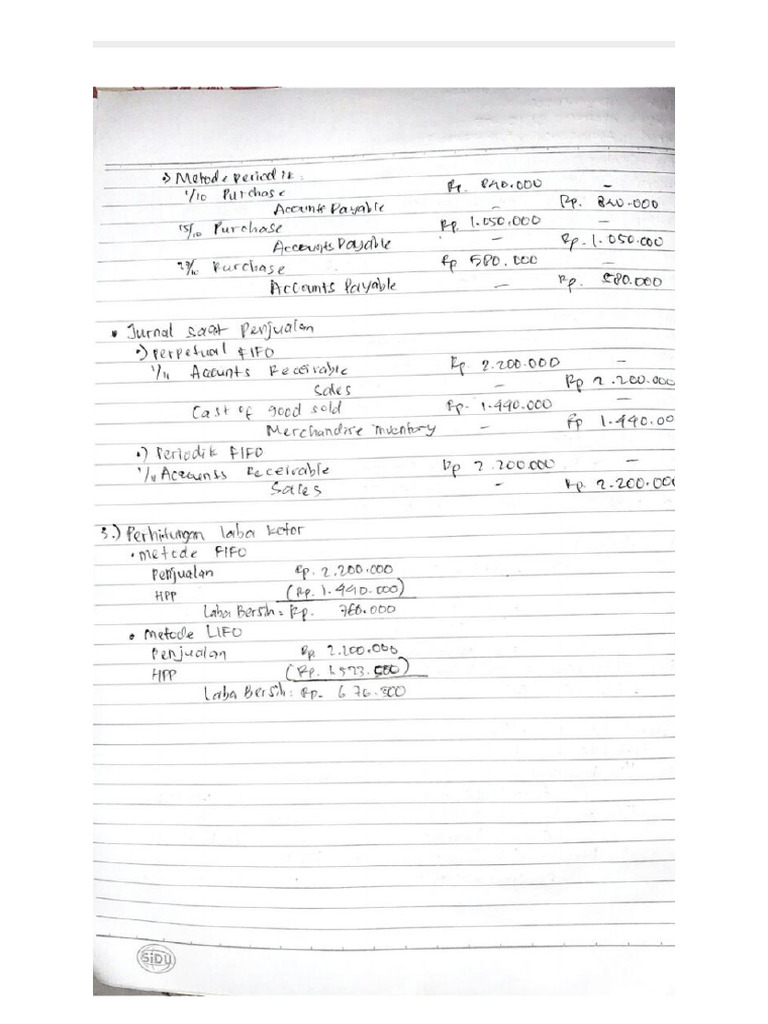 •) Metode Periodik :
1/10 Purchase Rp. 840.000 –
Accounts Payable – Rp. 840.000
15/10 Purchase Rp. 1.050.000 –
Accounts Payable – Rp. 1.050.000
Purchase Rp 580.000 –
Accounts Payable – Rp. 580.000
• Jurnal saat Penjualan
•) Perpetual FIFO
1/11 Accounts Receivable Rp. 2.200.000 –
Sales – Rp 2.200.000
Cost of good sold Rp. 1.440.000 –
Merchandise Inventory – Rp 1.440.00
•) Periodik FIFO
1/11 Accounts Receivable Rp 2.200.000 –
Sales – Rp. 2.200.000
3.) Perhitungan laba kotor
• metode FIFO
Penjualan Rp. 2.200.000
HPP (Rp. 1.440.000)
Laba Bersih = Rp. 760.000
• Metode LIFO
Penjualan Rp 2.200.000
HPP (Rp.
Laba Bersih : Rp. 676.
SiDU